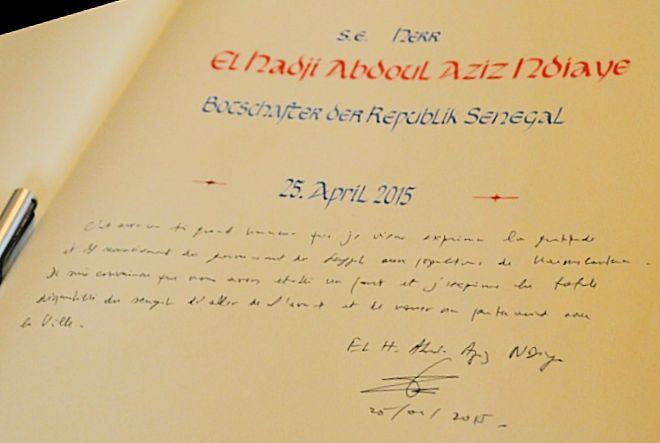 S.E. Herr
El Hadji Abdoul Aziz Ndiaye
Botschafter der Republik Senegal
25. April 2015
C'est avec un grand honneur que je viens exprimer la gratitude
et du gouvernement du aux populations de Kaiserslautern.
Je suis convaincu que nous avons un pont et j'exprime la
du Sénégal d'aller de l'avant et de un partenariat avec
la Ville.
El H. Abd. Aziz NDiaye
25/04/2015